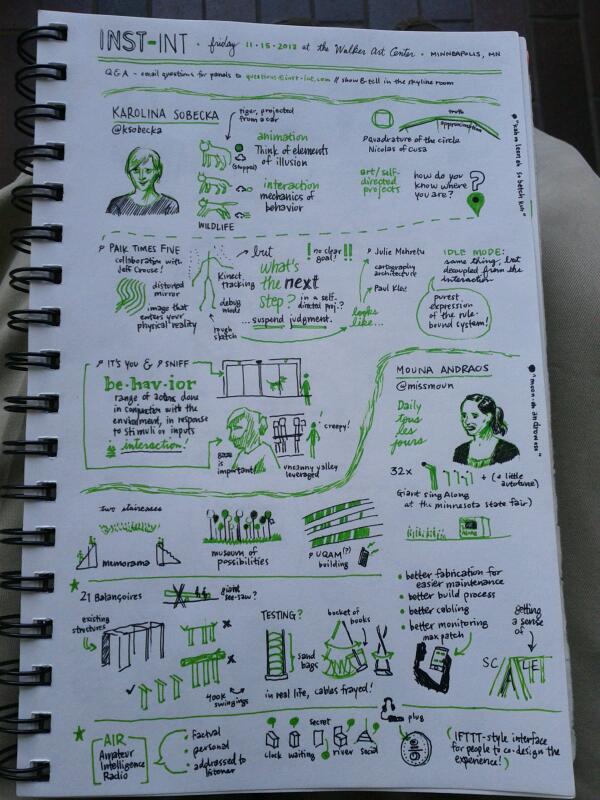 INST-INT · friday 11·15·2013 at the Walker Art Center · MINNEAPOLIS, MN
Q&A - email questions for panels to questions@inst-int.com // show & tell in the skyline room
KAROLINA SOBECKA
@ksobecka
tiger, projected
from a car
(stopped)
animation
Think of elements
of illusion
interaction
mechanics of
behavior
WILDLIFE
truth
approximation
quadrature of the circle
Nicolas of Cusa
art/self-
directed
projects
how do you
know where
you are?
PAIK TIMES FIVE
collaboration with
Jeff Crouse!
distorted
mirror
image that
enters your
physical reality
Kinect
tracking
debug
mode
rough
sketch
but
what's
the next
step?
in a self-
directed proj.?
...suspend judgment.
! no clear
goal!
looks
like...
Julie Mehretu
cartography
architecture
Paul Klee
IDLE MODE:
same thing, but
decoupled from the
interaction
purest
expression
of the rule-
bound system!
IT'S YOU & SNIFF
be·hav·ior
range of actions done
in conjunction with the
environment, in response
to stimuli or inputs
is interaction!
gaze
is important!
creepy!
uncanny valley
leveraged
MOUNA ANDRAOS
@missmoun
Daily
tous
les
jours
"moon-ah an-drow-es"
32x
+ (a little
autotune)
Giant Sing Along
at the minnesota state fair)
two staircases
memorama
museum of
possibilities
UQAM(?)
building
21 Balançoires
giant
see-saw?
existing
structures
400K
swingings
TESTING?
sand
bags
bucket of
books
in real life, cables frayed!
better fabrication for
easier maintenance
better build process
better cabling
better monitoring
max patch
getting
a sense
of
AIR
Amateur
Intelligence
Radio
factual
personal
addressed to
listener
secret
clock waiting river social
plug
(IFTTT-style interface
for people to co-design the
experience!)